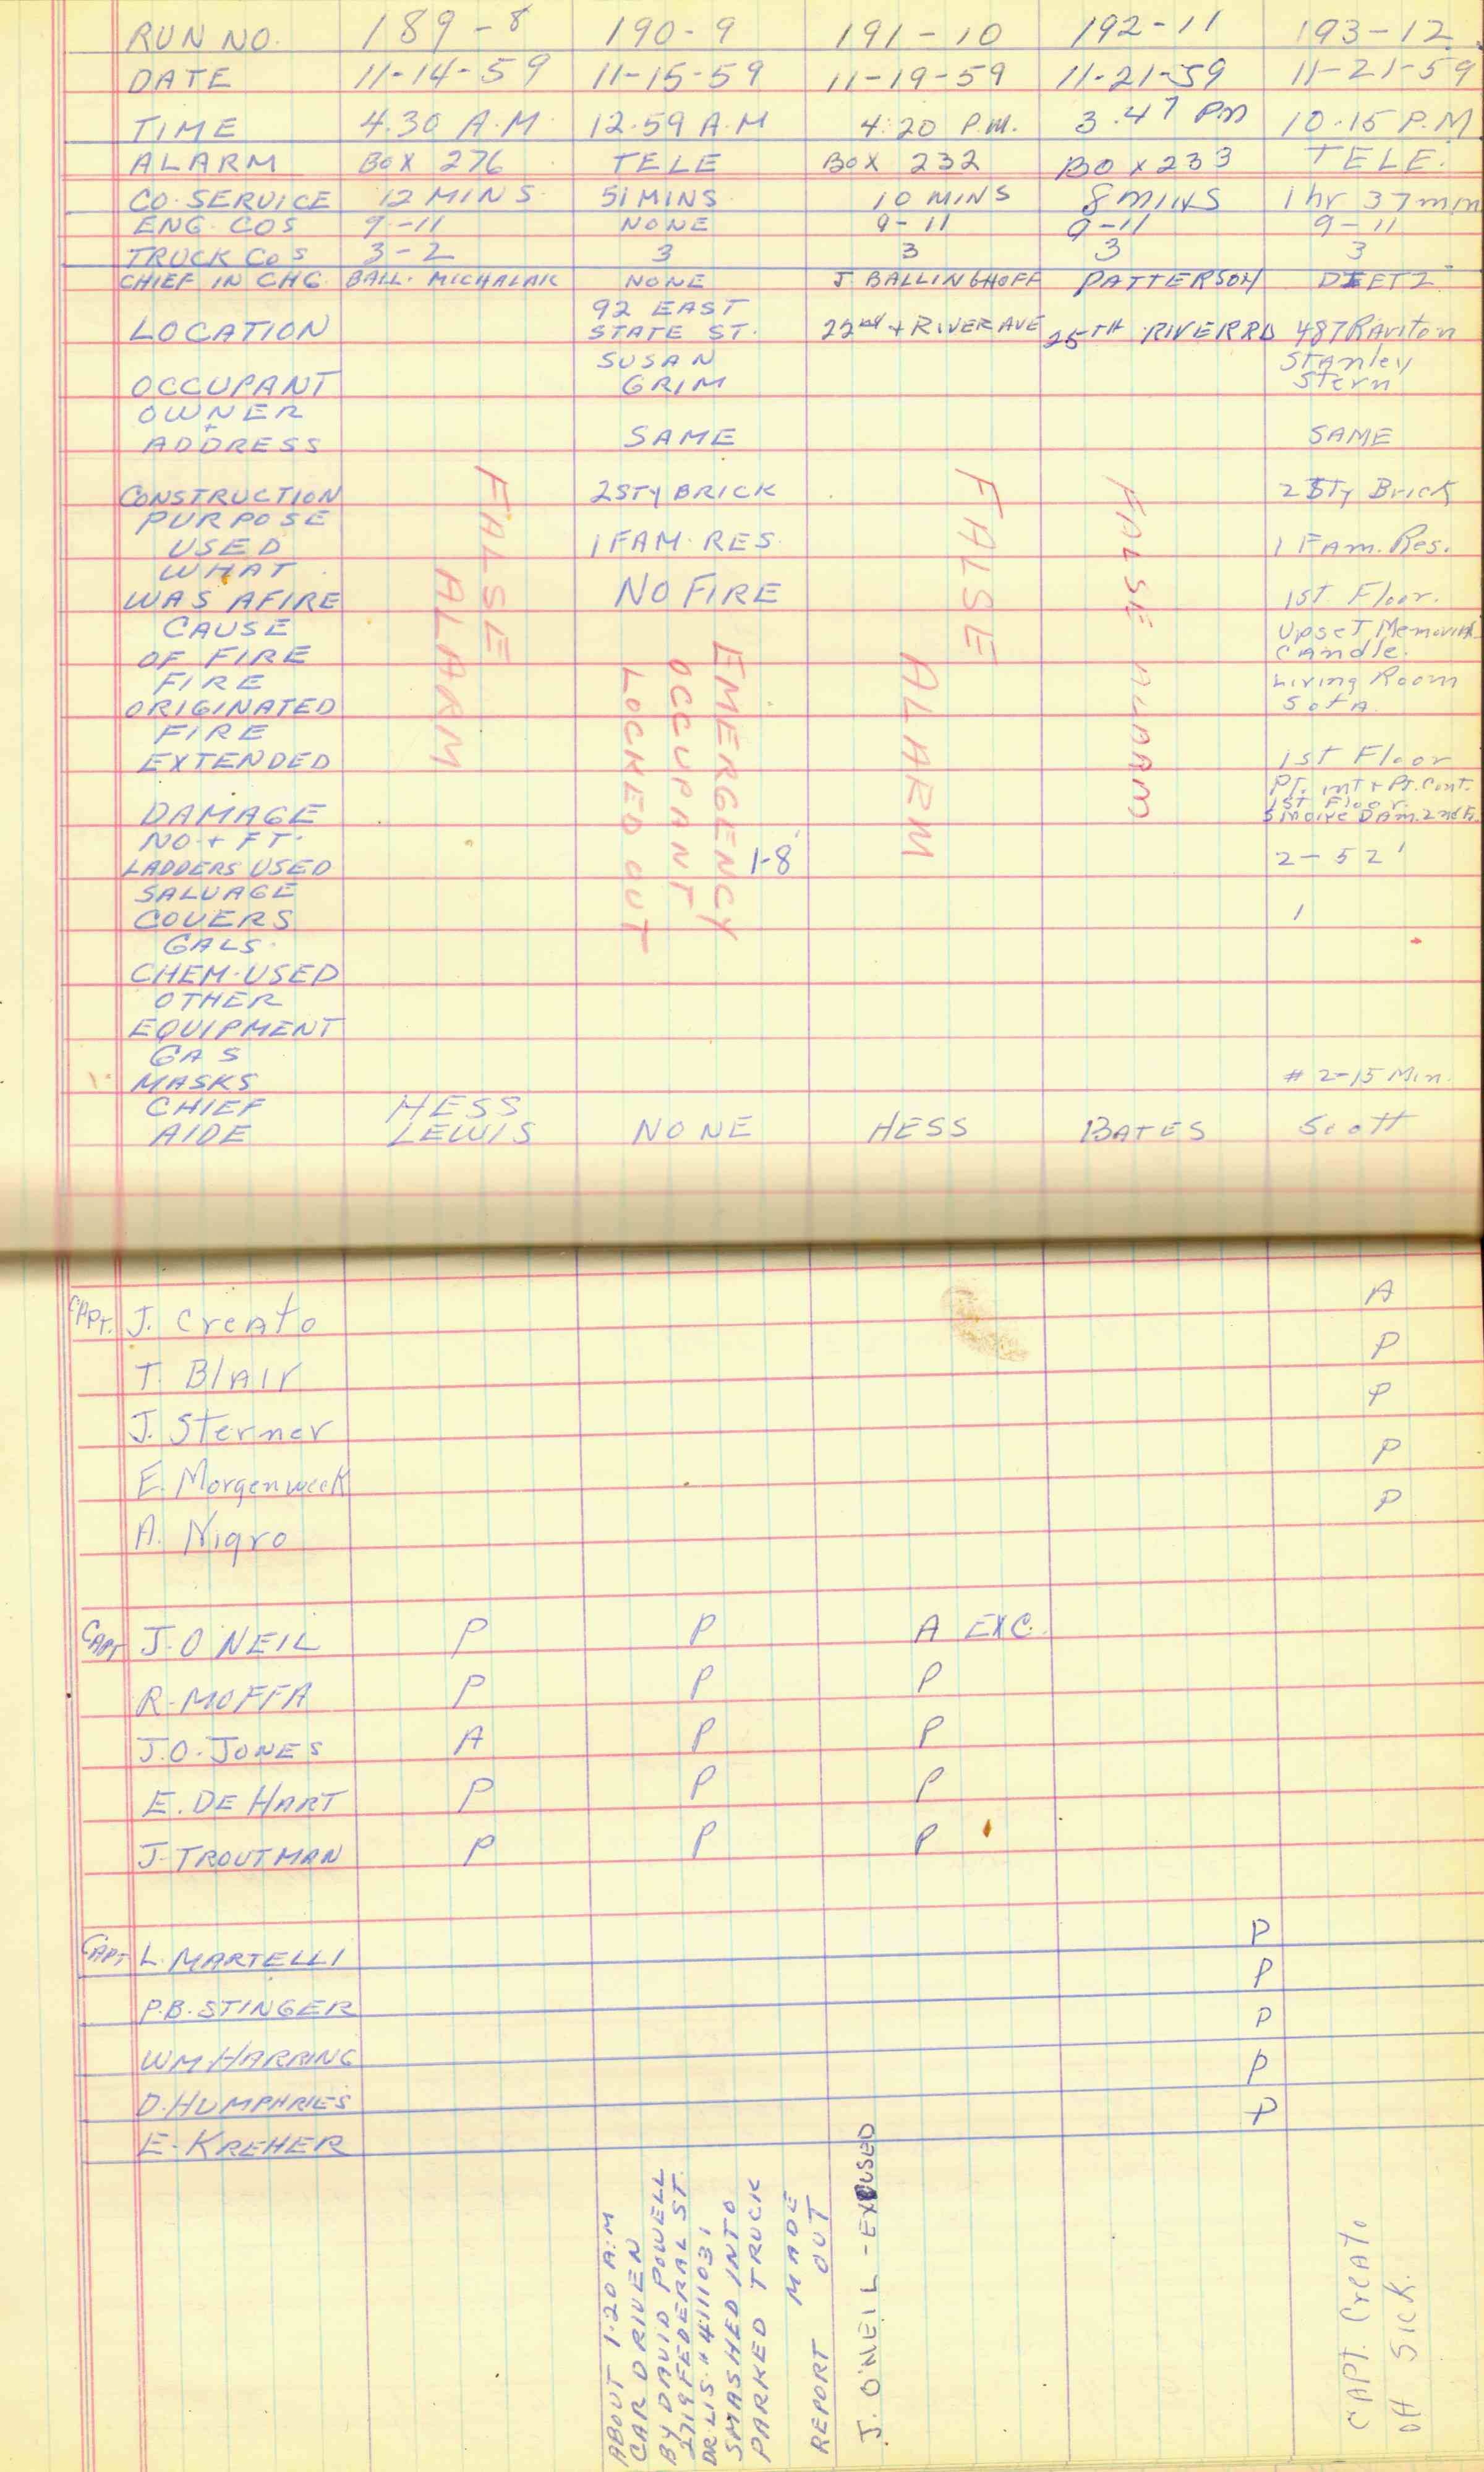 RUN NO. 189-8 190-9 191-10 192-11 193-12
DATE 11-14-59 11-15-59 11-19-59 11-21-59 11-21-59
TIME 4.30 A.M. 12.59 A.M 4:20 P.M. 3.47 PM 10.15 P.M
ALARM BOX 276 TELE BOX 232 BOX 233 TELE.
CO. SERVICE 12 MINS. 51 MINS. 10 MINS 8 MINS 1 hr 37 min
ENG. COS 9-11 NONE 9-11 9-11 9-11
TRUCK COS 3-2 3 3 3 3
CHIEF IN CHG. BALL. MICHALAK NONE J. BALLINGHOFF PATTERSON DIETZ
LOCATION 92 EAST STATE ST. 22nd + RIVER AVE 25TH RIVER RD 487 Rariton
OCCUPANT SUSAN GRIM STANley Stern
OWNER + ADDRESS SAME SAME
CONSTRUCTION 2 STY BRICK 2 STy Brick
PURPOSE USED 1 FAM. RES. 1 FAm. Res.
WHAT WAS AFIRE NO FIRE 1ST Floor.
CAUSE OF FIRE UpseT Memorial Candle.
FIRE ORIGINATED Living Room Sofa
FIRE EXTENDED 1ST Floor
DAMAGE Pt. int + Pt. Cont. 1ST Floor. Smoke DAm. 2nd Fl.
NO. + FT. LADDERS USED 1-8' 2-52'
SALVAGE COVERS 1
GALS. CHEM. USED
OTHER EQUIPMENT
GAS MASKS # 2-15 Min.
CHIEF AIDE HESS LEWIS NONE HESS BATES Scott
FALSE ALARM
EMERGENCY OCCUPANT LOCKED OUT
FALSE ALARM
FALSE ALARM
CAPT. J. Creato A
T. BlAir P
J. Sterner P
E. Morgenweck P
A. Nigro P
CAPT J. O NEIL P P A EXC.
R. MOFFA P P P
J.O. JONES A P P
E. DE HART P P P
J. TROUTMAN P P P
CAPT L. MARTELLI P
P.B. STINGER P
WM HARRING P
D. HUMPHRIES P
E. KREHER P
ABOUT 1:20 A.M
CAR DRIVEN
BY DAVID POWELL
2719 FEDERAL ST.
DR. LIS. # 4111031
SMASHED INTO
PARKED TRUCK
REPORT MADE OUT
J. O'NEIL - EXCUSED
CAPT. Creato
off SICK.